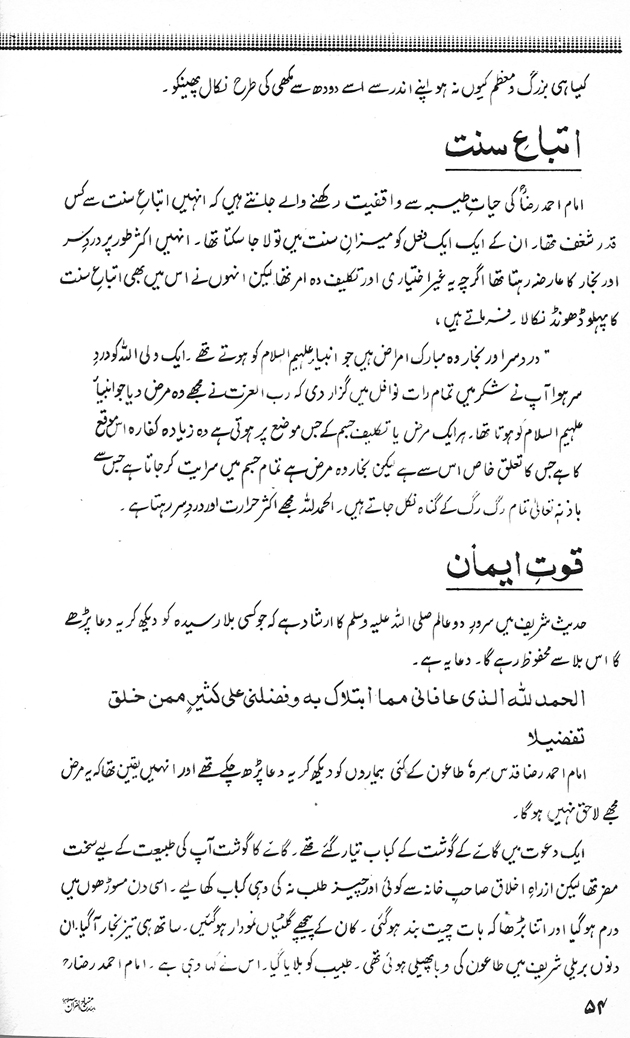 کیسا ہی بزرگ و معظم کیوں نہ ہو اپنے اندر سے اسے دودھ سے مکھی کی طرح نکال پھینکو۔
اتباعِ سنت
امام احمد رضاؒ کی حیاتِ طیبہ سے واقفیت رکھنے والے جانتے ہیں کہ انہیں اتباعِ سنت سے کس
قدر شغف تھا۔ ان کے ایک ایک فعل کو میزانِ سنت میں تولا جا سکتا تھا۔ انہیں اکثر طور پر دردِ سر
اور بخار کا عارضہ رہتا تھا اگرچہ یہ غیر اختیاری اور تکلیف دہ امر تھا لیکن انہوں نے اس میں بھی اتباعِ سنت
کا پہلو ڈھونڈ نکالا۔ فرماتے ہیں،
"دردِ سر اور بخار وہ مبارک امراض ہیں جو انبیاء علیہم السلام کو ہوتے تھے۔ ایک ولی اللہ کو دردِ
سر ہوا آپ نے شکر میں تمام رات نوافل میں گزار دی کہ رب العزت نے مجھے وہ مرض دیا جو انبیاء
علیہم السلام کو ہوتا تھا۔ ہر ایک مرض یا تکلیف جسم کے جس موضع پر ہوتی ہے وہ زیادہ کفارہ اس موقع
کا ہے جس کا تعلق خاص اس سے ہے لیکن بخار وہ مرض ہے تمام جسم میں سرایت کر جاتا ہے جس سے
باذنہٖ تعالیٰ تمام رگ رگ کے گناہ نکل جاتے ہیں۔ الحمد للہ مجھے اکثر حرارت اور دردِ سر رہتا ہے۔
قوتِ ایمان
حدیث شریف میں سرورِ دو عالم صلی اللہ علیہ وسلم کا ارشاد ہے کہ جو کسی بلا رسیدہ کو دیکھ کر یہ دعا پڑھے
گا اس بلا سے محفوظ رہے گا۔ دعا یہ ہے۔
الحمد للہ الذی عافانی مما ابتلاک بہ وفضلنی علی کثیرٍ ممن خلق
تفضیلا
امام احمد رضا قدس سرہٗ طاعون کے کئی بیماروں کو دیکھ کر یہ دعا پڑھ چکے تھے اور انہیں یقین تھا کہ یہ مرض
مجھے لاحق نہیں ہو گا۔
ایک دعوت میں گائے کے گوشت کے کباب تیار کئے گئے تھے۔ گائے کا گوشت آپ کی طبیعت کے لیے سخت
مضر تھا لیکن ازراہِ اخلاق صاحبِ خانہ سے کوئی اور چیز طلب نہ کی وہی کباب کھا لیے۔ اسی دن مسوڑھوں میں
ورم ہو گیا اور اتنا بڑھا کہ بات چیت بند ہو گئی۔ کان کے پیچھے گلٹیاں نمودار ہو گئیں۔ ساتھ ہی تیز بخار آ گیا۔ ان
دنوں بریلی شریف میں طاعون کی وبا پھیلی ہوئی تھی۔ طبیب کو بلایا گیا۔ اس نے کہا وہی ہے۔ امام احمد رضاؒ
۵۴